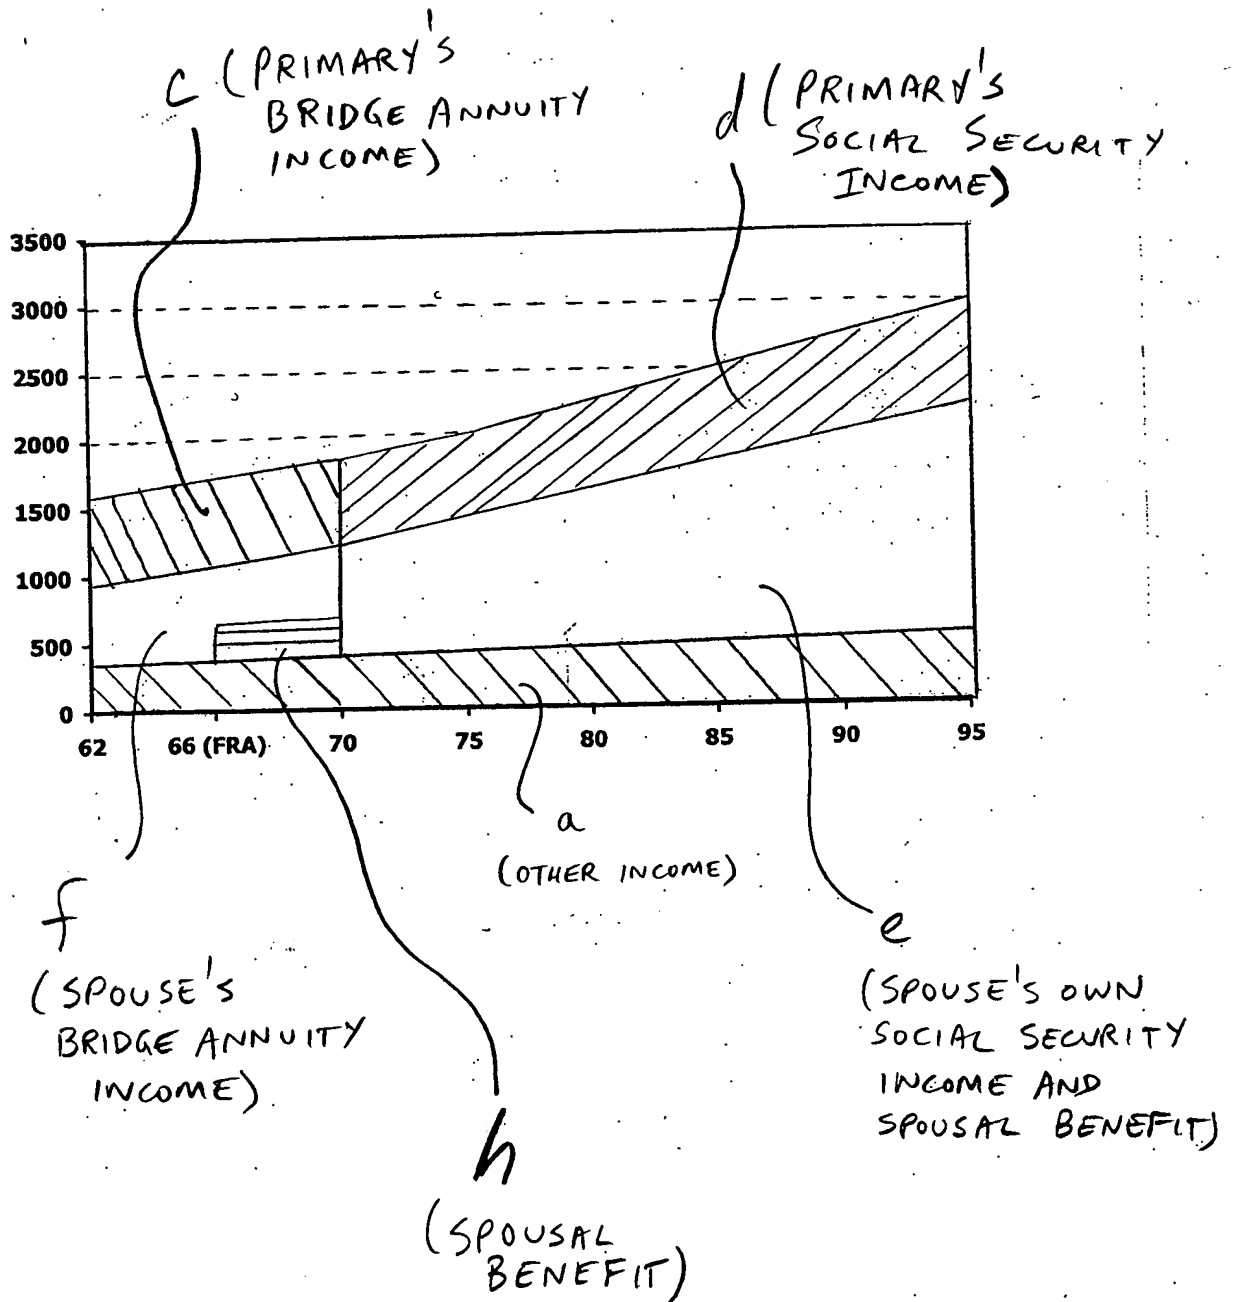 c (PRIMARY'S
BRIDGE ANNUITY
INCOME)
d (PRIMARY'S
SOCIAL SECURITY
INCOME)
3500
3000
2500
2000
1500
1000
500
0
62
66 (FRA)
70
75
80
85
90
95
a
(OTHER INCOME)
f
(SPOUSE'S
BRIDGE ANNUITY
INCOME)
e
(SPOUSE'S OWN
SOCIAL SECURITY
INCOME AND
SPOUSAL BENEFIT)
h
(SPOUSAL
BENEFIT)